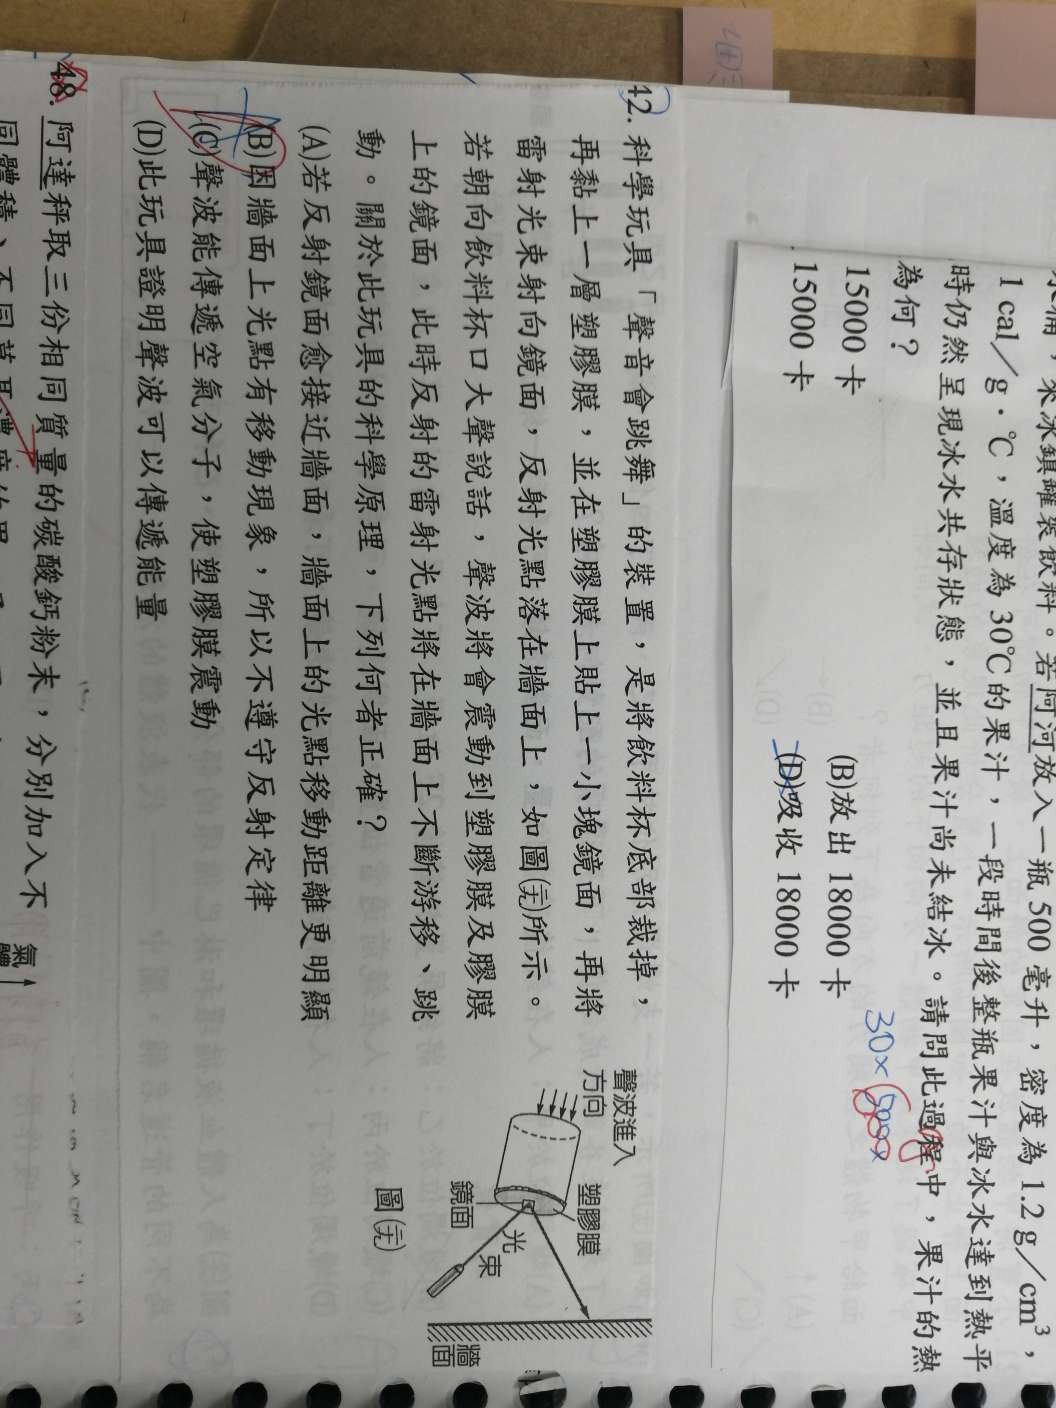 1 cal／g．℃，溫度為 30℃的果汁，一段時間後整瓶果汁與冰水達到熱平
時仍然呈現冰水共存狀態，並且果汁尚未結冰。請問此過程中，果汁的熱
為何？
15000 卡
(B)放出 18000 卡
15000 卡
(D)吸收 18000 卡
30×
42. 科學玩具「聲音會跳舞」的裝置，是將飲料杯底部裁掉，
再黏上一層塑膠膜，並在塑膠膜上貼上一小塊鏡面，再將
雷射光束射向鏡面，反射光點落在牆面上，如圖(元)所示。
若朝向飲料杯口大聲說話，聲波將會震動到塑膠膜及膠膜
上的鏡面，此時反射的雷射光點將在牆面上不斷游移、跳
動。關於此玩具的科學原理，下列何者正確？
(A)若反射鏡面愈接近牆面，牆面上的光點移動距離更明顯
(B)因牆面上光點有移動現象，所以不遵守反射定律
(C)聲波能傳遞空氣分子，使塑膠膜震動
(D)此玩具證明聲波可以傳遞能量
聲波進入
方向
塑膠膜
鏡面
光束
牆面
48. 阿達秤取三份相同質量的碳酸鈣粉末，分別加入不
氣體